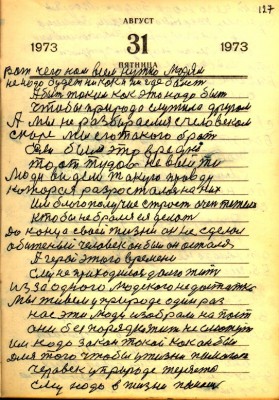 127
АВГУСТ
1973 31 1973
ПЯТНИЦА
вот чего нам всем нужно людям
не надо будет никак и нигде болеть
А быт таким как это надо быт
чтобы природа служила другом
А мы не разбираемся с человеком
скоро мы его такого брат
был это вред
то от туда не выйти
Люди видели такую правду
которая разросталася на них
им благополучие строит
кто бы не брался делат
до конца своей жизни он не сделал
обиженый человек он был он остался
А герой этого времени
ему не приходилос долго жит
из за одного людского недостатка
мы живем у природе один раз
нас эти люди избрали на пост
они без порядка жит не смогут
им надо закон такой как он был
для того чтобы у жизни
человек у природе терялся
ему надо в жизни